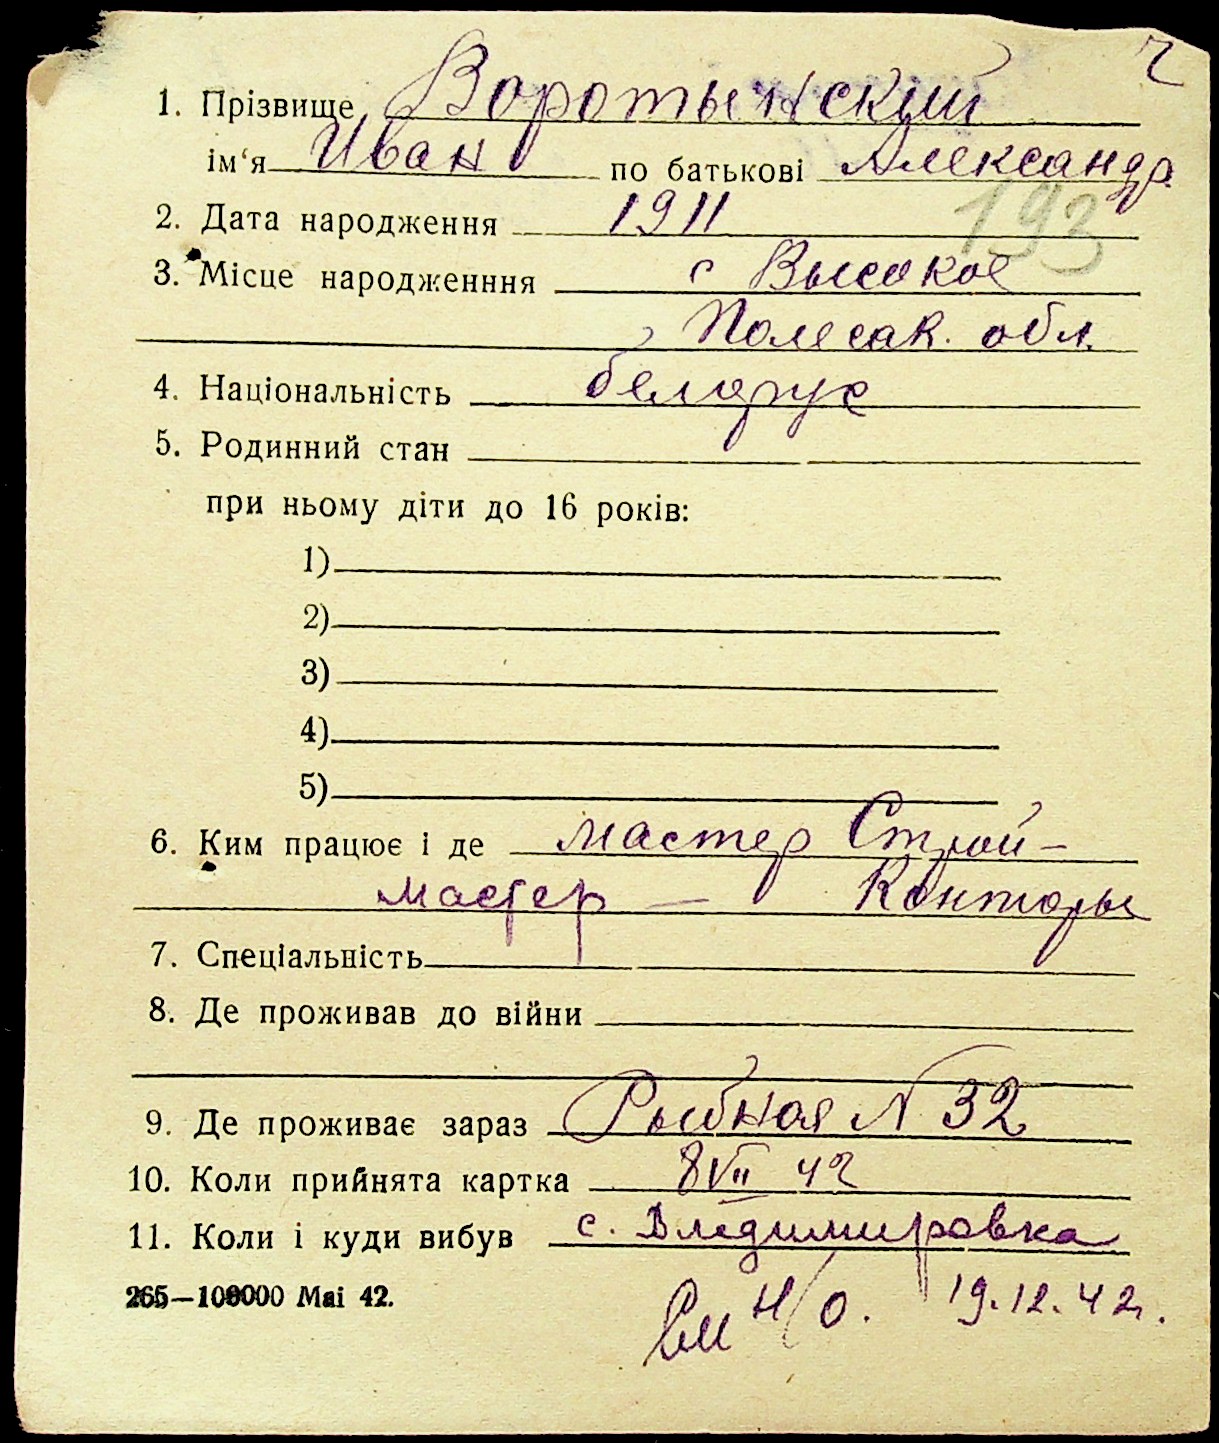 ч
1. Прізвище Воротынский
ім‘я Иван по батькові Александр.
2. Дата народження 1911
193
3. Місце народженння с Высокое
Полесск. обл.
4. Національність белорус
5. Родинний стан
при ньому діти до 16 років:
1)
2)
3)
4)
5)
6. Ким працює і де мастер Строй-
мастер — Конторы
7. Спеціальність
8. Де проживав до війни
9. Де проживає зараз Рыбная N 32
10. Коли прийнята картка 8 VII 42
11. Коли і куди вибув с. Владимировка
265—100000 Mai 42. См н/о. 19.12.42.